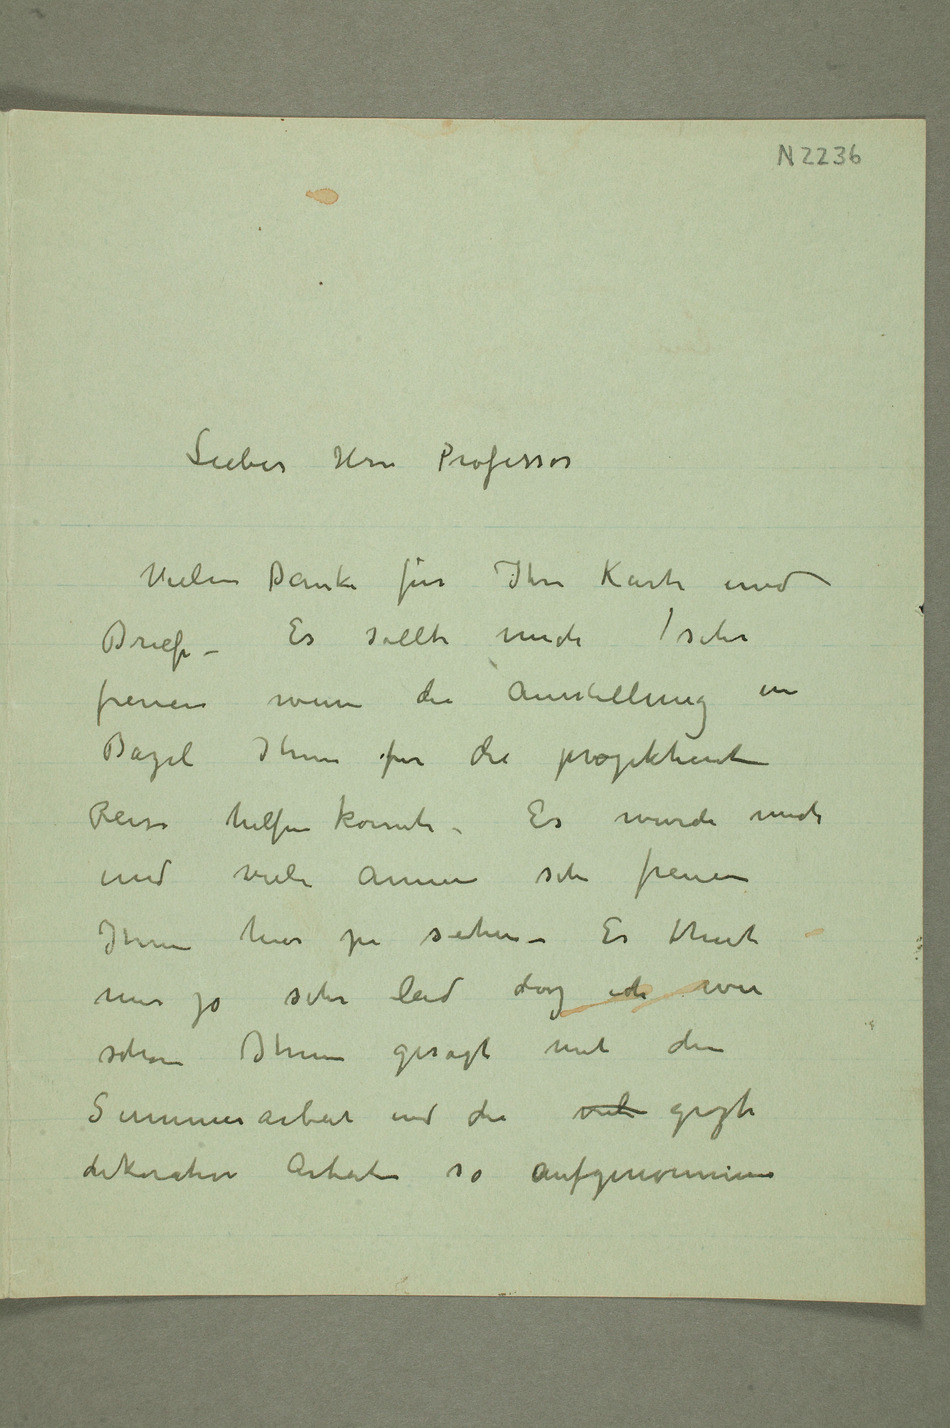 N 2236
Lieber Herr Professor
Vielen Danke für Ihre Karte und
Briefe – Es sollte mich sehr
freuen wenn die Ausstellung in
Bazel Ihnen für die projektierte
Reise helfen konnte – Es wurde mich
und viele Annere sehr freuen
Ihnen hier zu sehen – Es thut
mir jo sehr leid daz ich wie
schon Ihnen gesagt mit den
Summerarbeit und die viele grozte
dekorative Arbeiten so aufgenommen